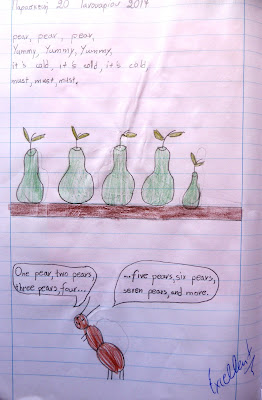 Παρασκευή 20 Ιανουαρίου 2017
pear, pear, pear,
Yummy, Yummy, Yummy,
it's cold, it's cold, it's cold,
must, must, mst.
One pear, two pears,
three pears, four...
...five pears, six pears,
seven pears, and more.
Excellent